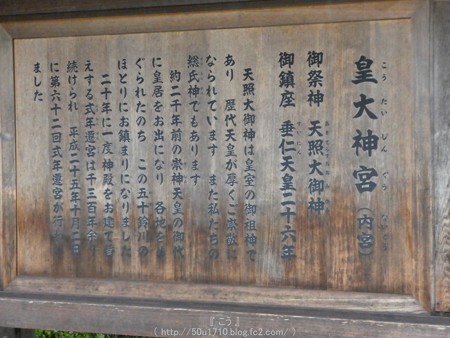 皇大神宮（内宮）
こうたいじんぐう ないくう
御祭神　天照大御神
御鎮座　垂仁天皇二十六年
天照大御神は皇室の御祖神で
あり　歴代天皇が厚くご崇敬に
なられています　また私たちの
総氏神でもあります
約二千年前の崇神天皇の御代
に皇居をお出になり　各地をめ
ぐられたのち　この五十鈴川の
ほとりにお鎮まりになりました
二十年に一度神殿をお建て替
えする式年遷宮は千三百年余り
続けられ　平成二十五年十月二日
に第六十二回式年遷宮が行
ました
『 こう 』
( http://50u1710.blog.fc2.com/ )